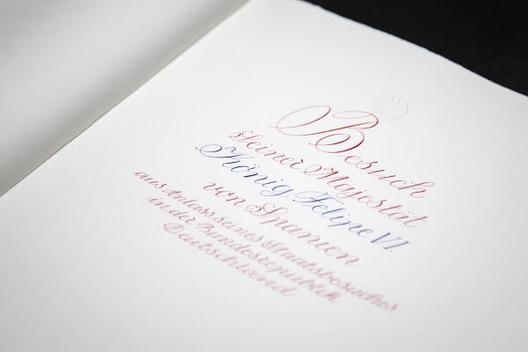 Besuch
Seiner Majestät
König Felipe VI
von Spanien
aus Anlass seines Staatsbesuches
in der Bundesrepublik
Deutschland